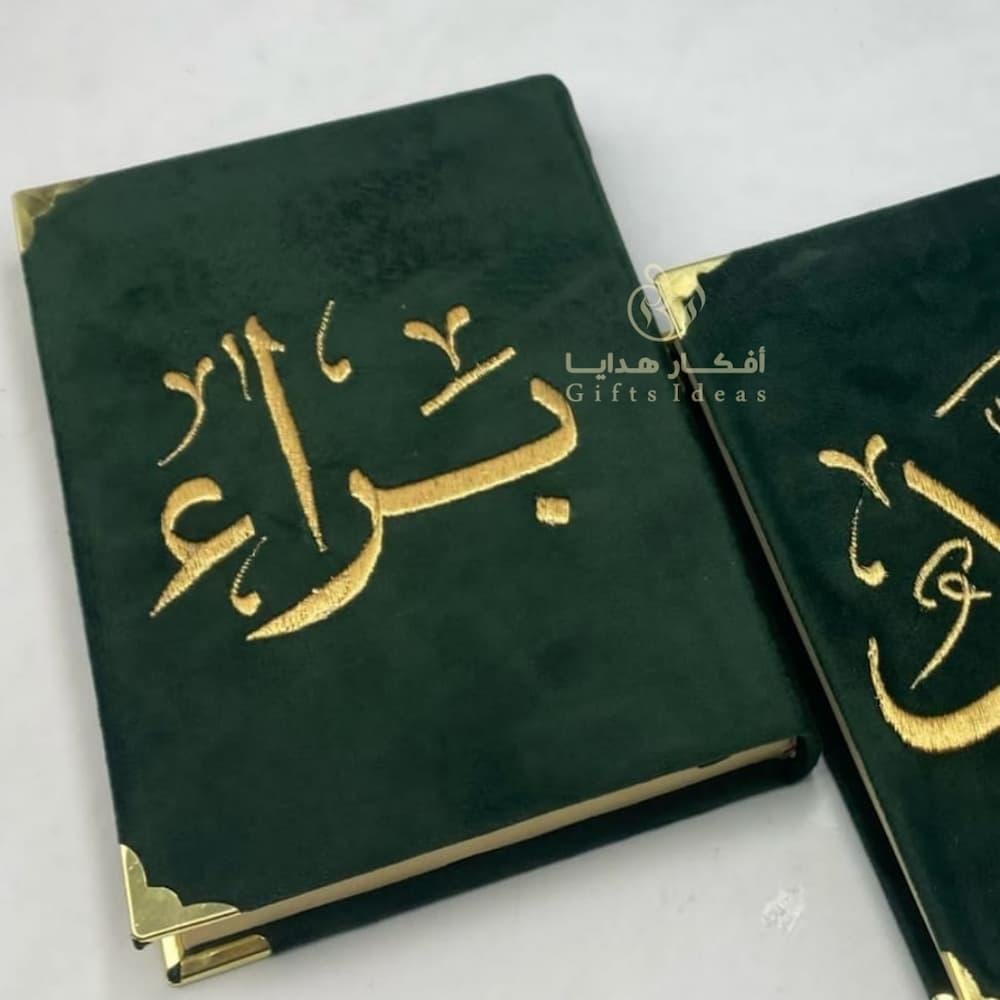 بَراء
أفكار هدايا
Gifts Ideas